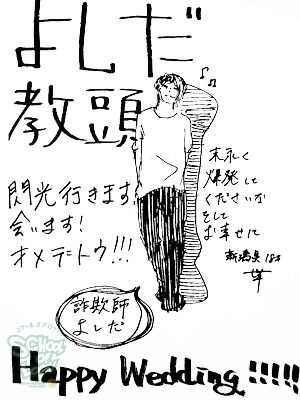 よしだ
教頭
閃光行きます!
会います!
オメデトウ!!!
末永く
爆発して
くださいな
そして
お幸せに
新潟県 18才
詐欺師
よしだ
Happy Wedding!!!!!